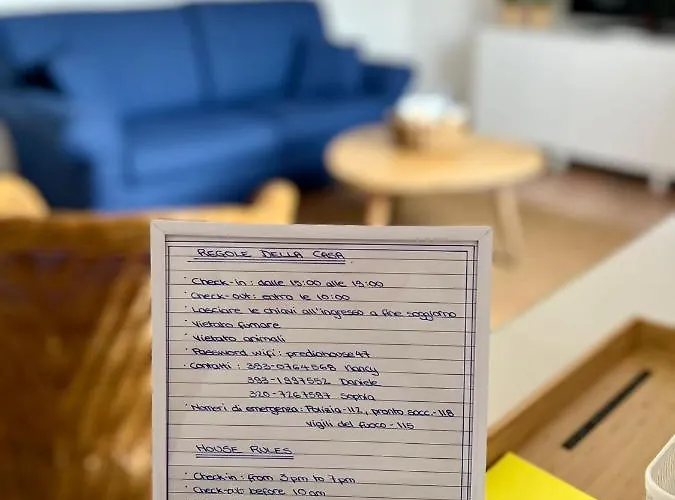 REGOLE DELLA CASA
· Check-in: dalle 15:00 alle 19:00
· Check-out: entro le 10:00
· Lasciare le chiavi all'ingresso a fine soggiorno
· Vietato fumare
· Vietato animali
· Password wifi: prediahouse47
· Contatti: 393-0764568 Nancy
393-1997552 Daniele
320-7267587 Sophia
· Numeri di emergenza: Polizia-112, pronto socc.-118
Vigili del fuoco-115
HOUSE RULES
· Check-in: from 3pm to 7pm
· Check-out before 10 am